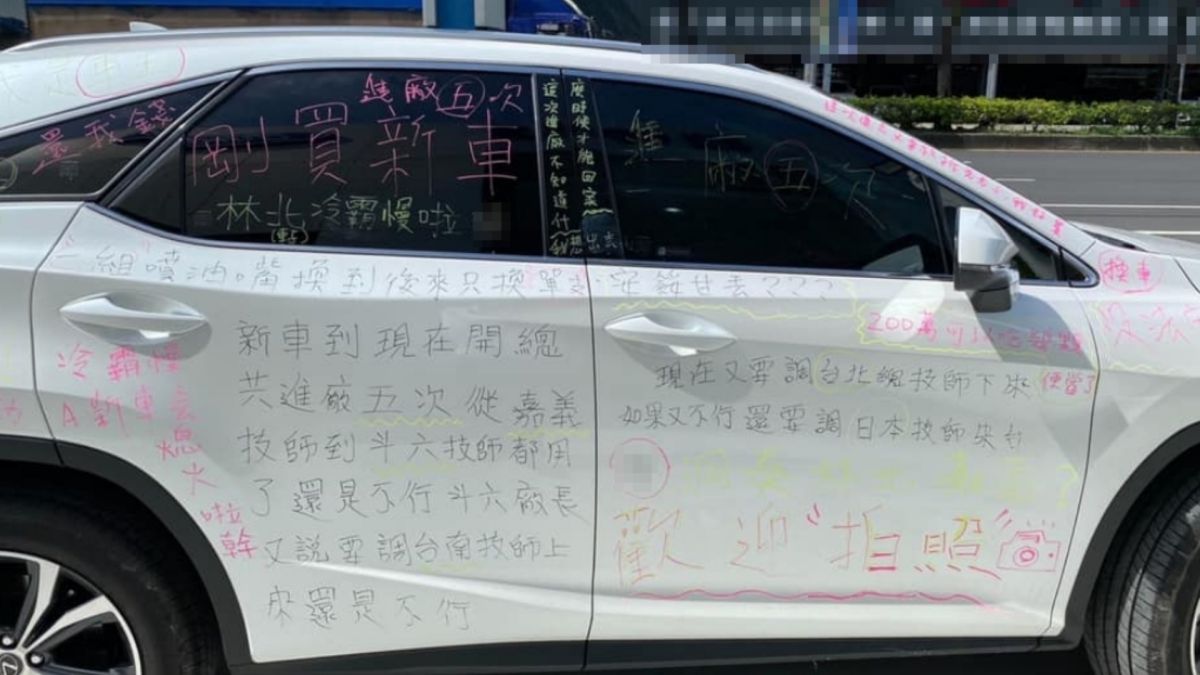 還我錢
進廠五次
剛買新車
林北冷霸慢啦
(轎)
這次進廠不知道什
麼時候才能回家
我想出去
進廠五次
一組噴油嘴換到後來只換單
???
新車到現在開總
共進廠五次從嘉義
技師到斗六技師都用
了還是不行斗六廠長
又說要調台南技師上
來還是不行
冷霸慢
A新車去
熄火
啦幹
換車
200萬可以
便當了
現在又要調台北總技師下來
如果又不行還要調日本技師來台
歡迎"拍照"